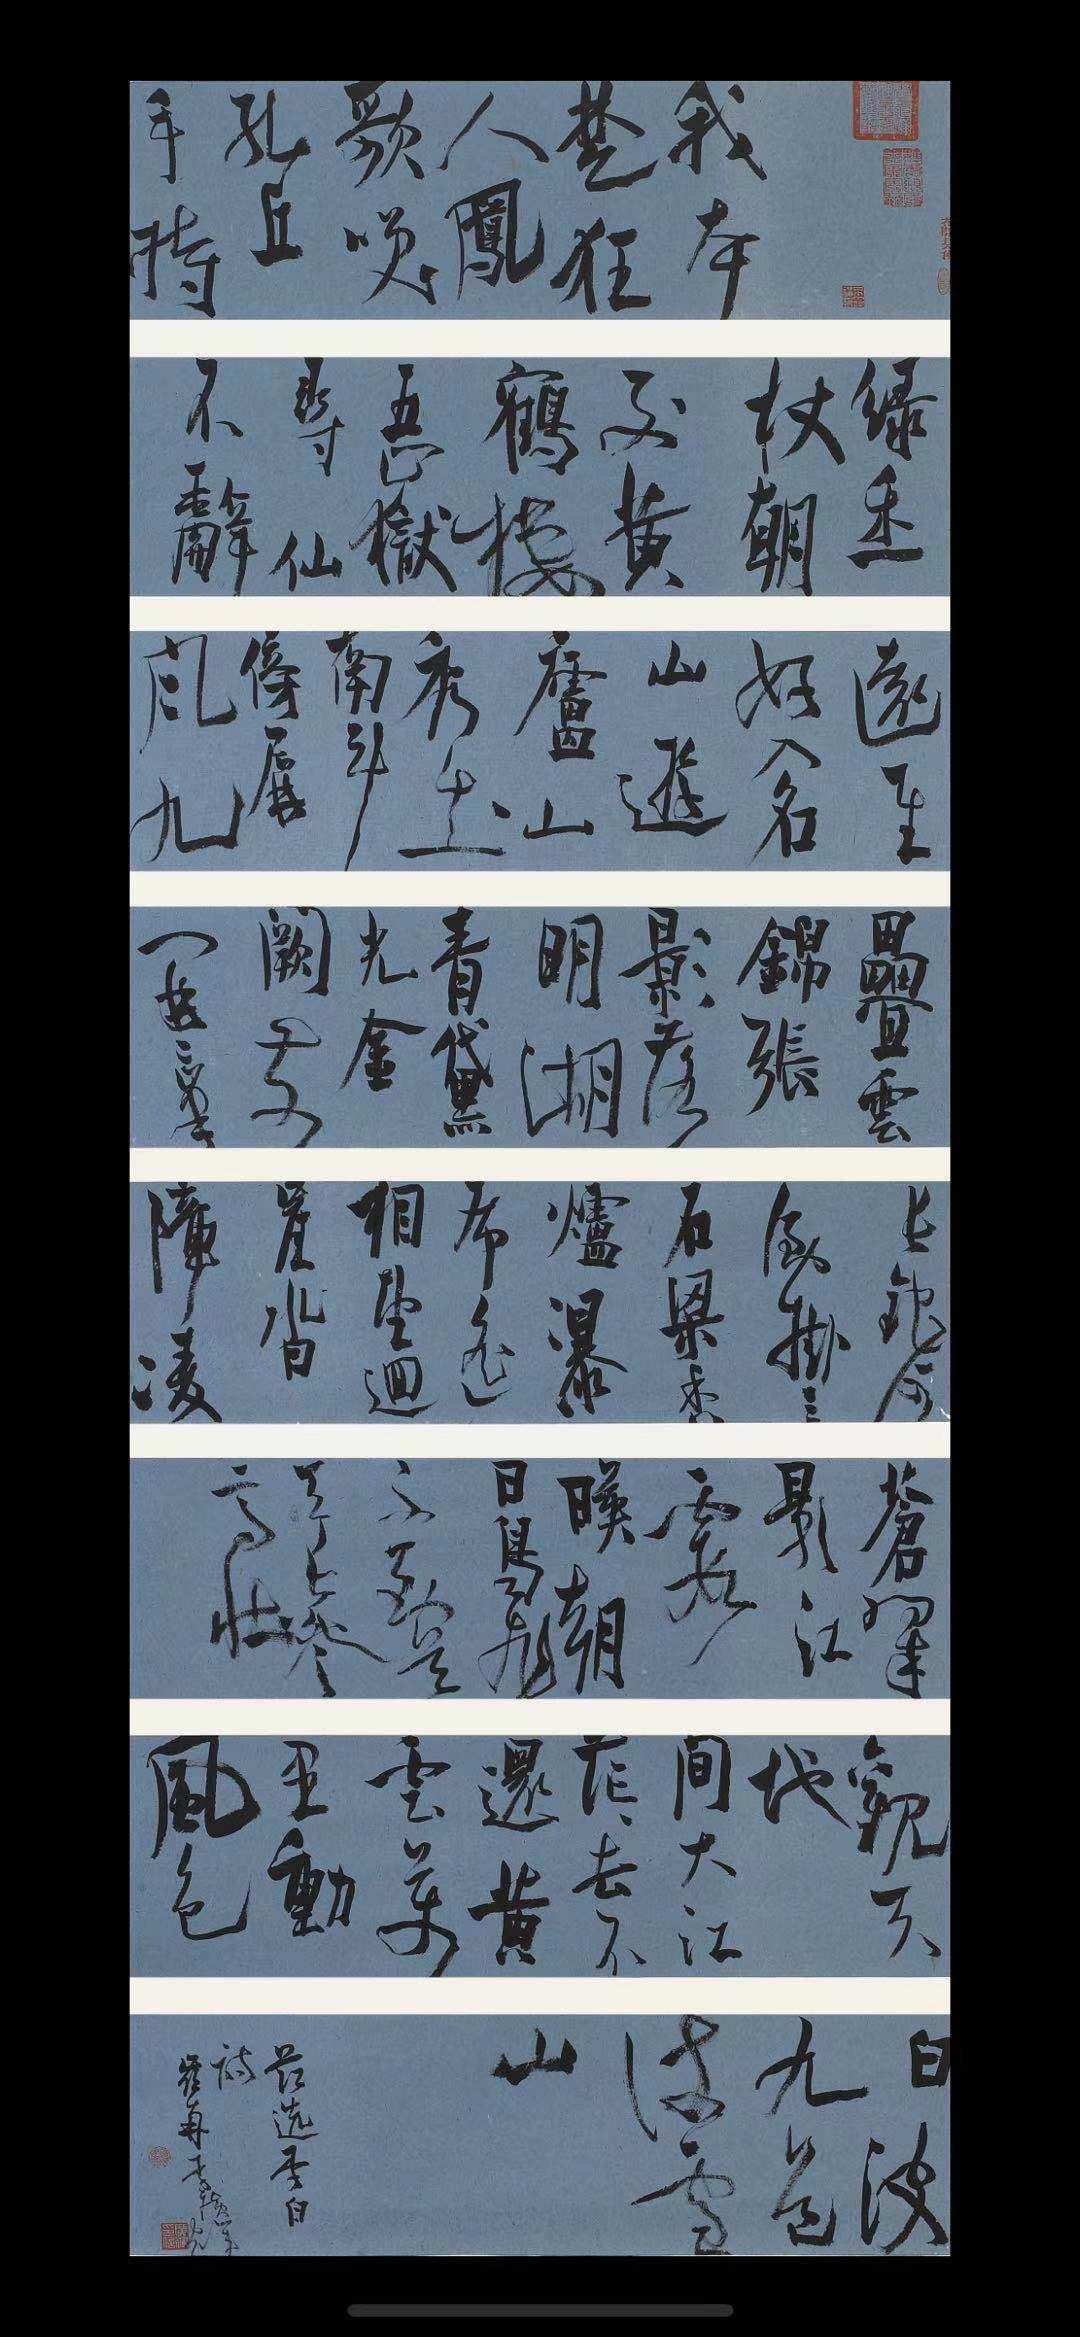 我本
楚狂
人鳳
歌笑
孔丘
手持
綠玉
杖朝
別黃
鶴樓
五嶽
尋仙
不辭
遠一生
好入名
山遊
廬山
秀出
南斗
傍屏
風九
疊雲
錦張
影落
明湖
青黛
光金
闕前
開二峯
長銀河
倒掛三
石梁香
爐瀑
布遙
相望迴
崖沓
障凌
蒼翠
影紅
霞
映朝
日鳥飛
不到吳
天長登
高壯
觀天
地
間大江
茫〻去不
還黃
雲萬
里動
風色
白波
九道
流雪
山
茲選李白
詩